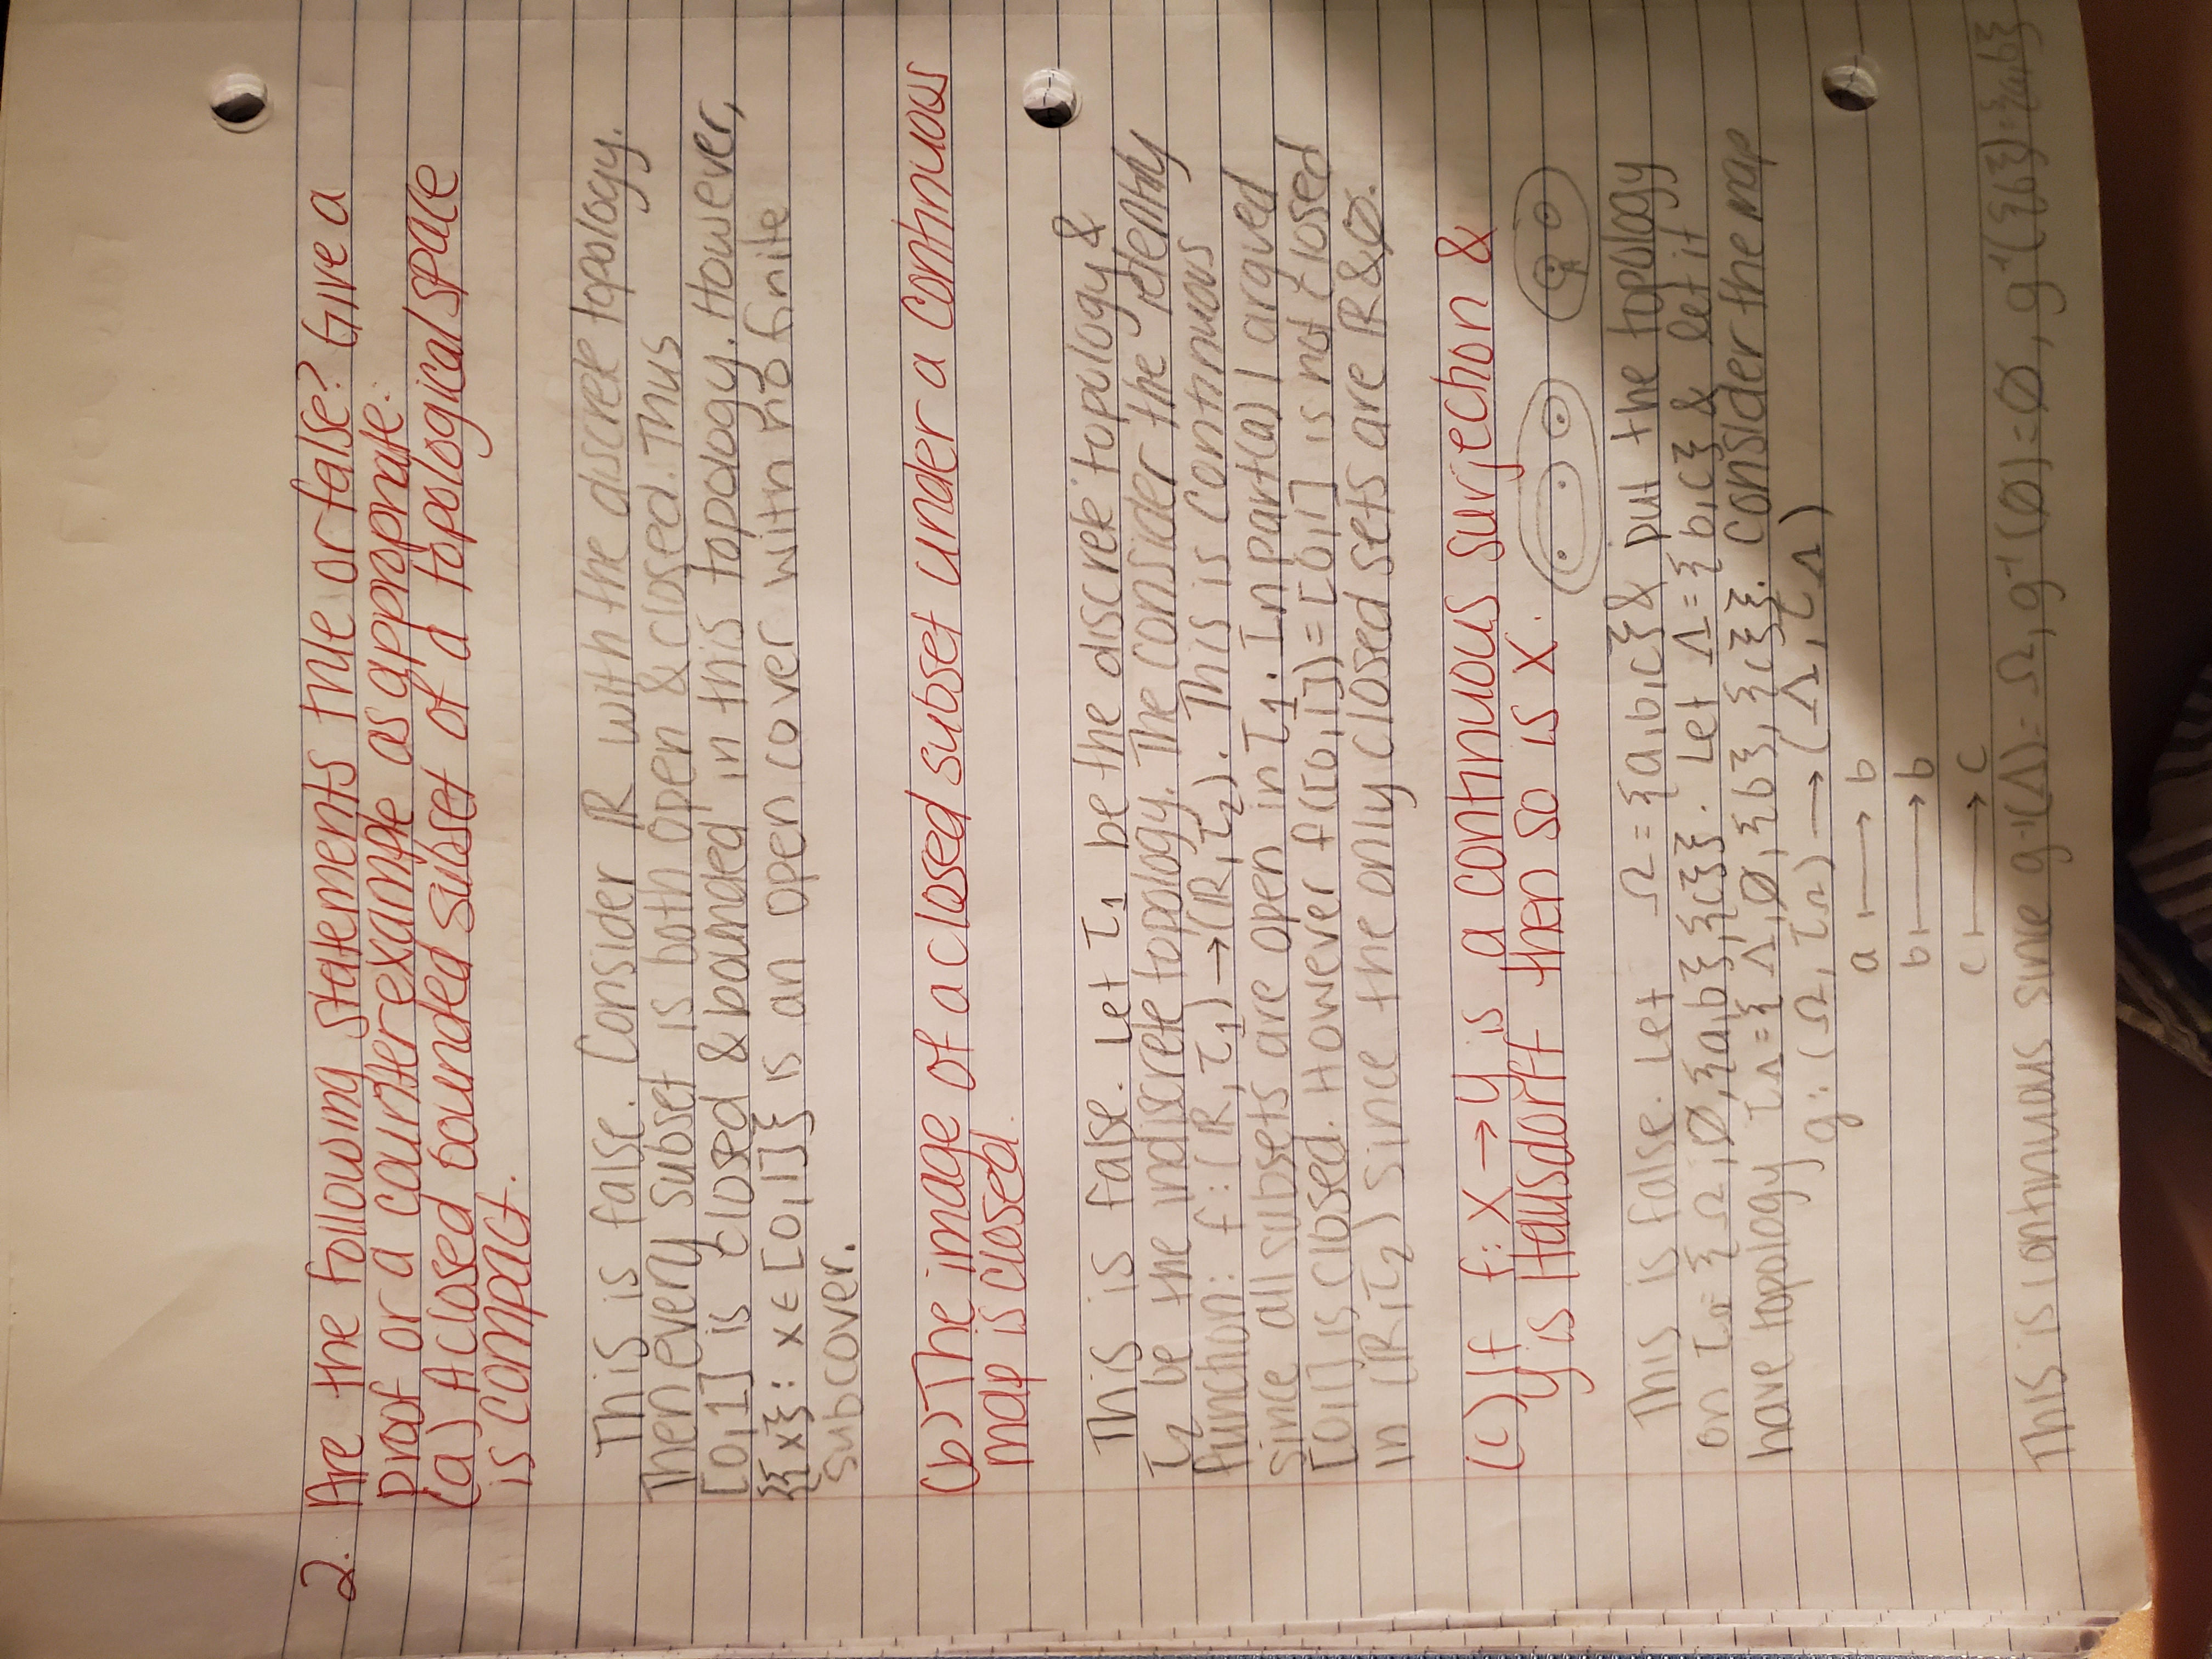 2. Are the following statements true or false? Give a
proof or a counterexample as appropriate:
(a) A closed bounded subset of a topological space
is compact.
This is false. Consider ℝ with the discrete topology.
Then every subset is both open & closed. Thus
[0,1] is closed & bounded in this topology. However,
{{x}: x ∈ [0,1]} is an open cover with no finite
subcover.
(b) The image of a closed subset under a continuous
map is closed.
This is false. Let τ₁ be the discrete topology &
τ₂ be the indiscrete topology. The consider the identity
function: f: (ℝ, τ₁) → (ℝ, τ₂). This is continuous
since all subsets are open in τ₁. In part (a) I argued
[0,1] is closed. However f([0,1]) = [0,1] is not closed
in (ℝ, τ₂) since the only closed sets are ℝ & ∅.
(c) If f: X → Y is a continuous surjection &
Y is Hausdorff then so is X.
This is false. Let Ω = {a,b,c} & put the topology
on τ_Ω = {Ω, ∅, {a,b}, {c}}. Let Λ = {b,c} & let it
have topology τ_Λ = {Λ, ∅, {b}, {c}}. Consider the map
g: (Ω, τ_Ω) → (Λ, τ_Λ)
a ↦ b
b ↦ b
c ↦ c
This is continuous since g⁻¹(Λ) = Ω, g⁻¹(∅) = ∅, g⁻¹({b}) = {a,b}